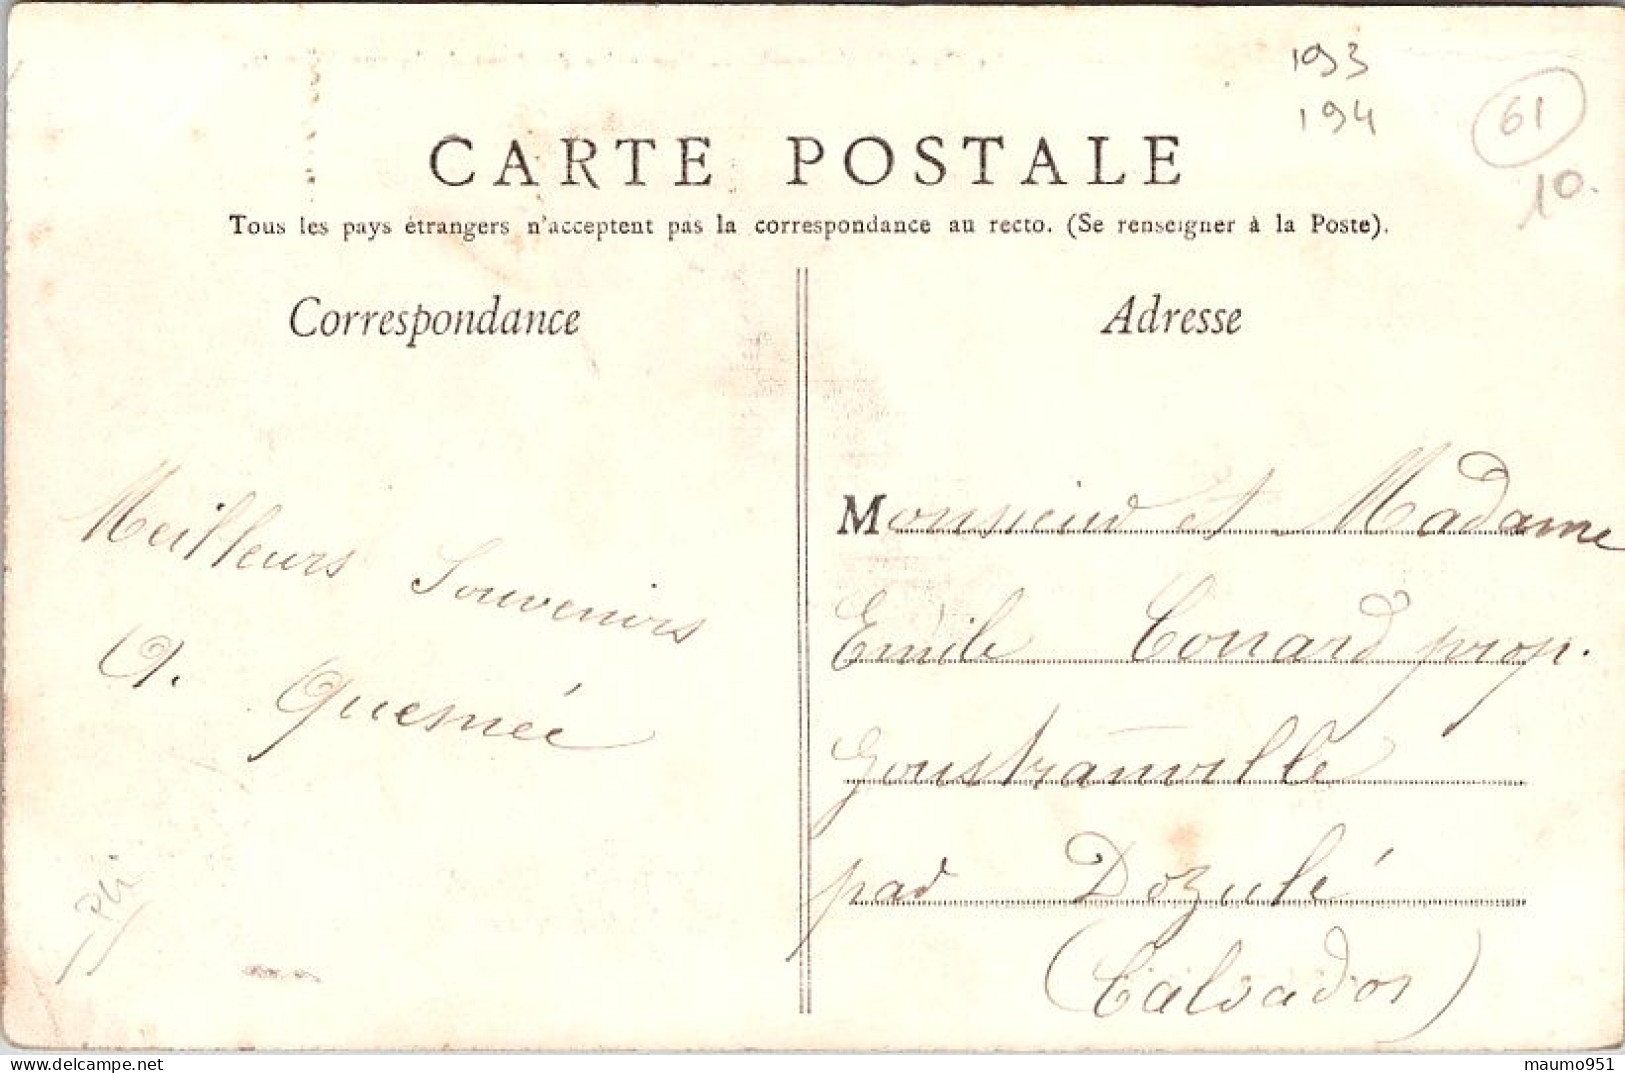 193
194
61
10.
CARTE POSTALE
Tous les pays étrangers n'acceptent pas la correspondance au recto. (Se renseigner à la Poste).
Correspondance
Adresse
Meilleurs Souvenirs
A. Quesnée
Monsieur et Madame
Emile Conard prop.
Goustranville
par Dozulé
(Calvados)
Pli
maumo951